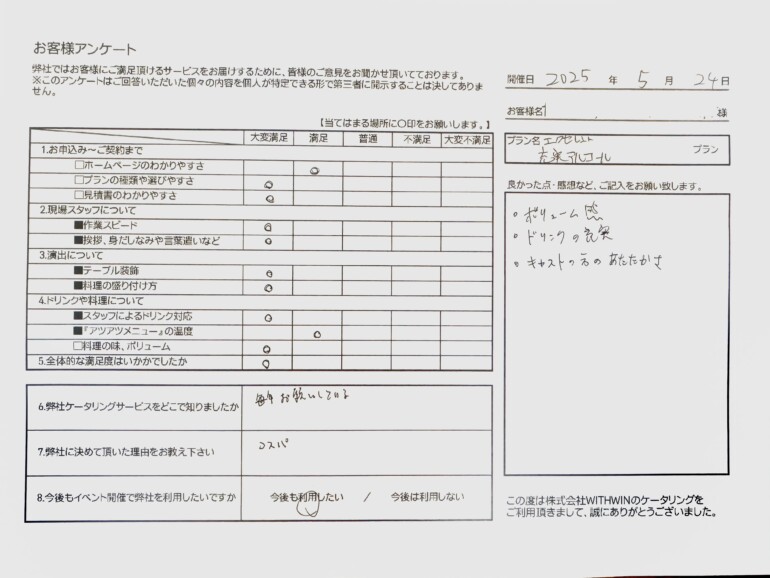 お客様アンケート
弊社ではお客様にご満足頂けるサービスをお届けするために、皆様のご意見をお聞かせ頂いております。
※このアンケートはご回答いただいた個々の内容を個人が特定できる形で第三者に開示することは決してありま
せん。
開催日 2025 年 5 月 24 日
お客様名 様
【当てはまる場所に○印をお願いします。】
大変満足 満足 普通 不満足 大変不満足
1.お申込み~ご契約まで
□ホームページのわかりやすさ ○
□プランの種類や選びやすさ ○
□見積書のわかりやすさ ○
2.現場スタッフについて
■作業スピード ○
■挨拶、身だしなみや言葉遣いなど ○
3.演出について
■テーブル装飾 ○
■料理の盛り付け方 ○
4.ドリンクや料理について
■スタッフによるドリンク対応 ○
■『アツアツメニュー』の温度 ○
□料理の味、ボリューム ○
5.全体的な満足度はいかがでしたか ○
6.弊社ケータリングサービスをどこで知りましたか 毎年お願いしている
7.弊社に決めて頂いた理由をお教え下さい コスパ
8.今後もイベント開催で弊社を利用したいですか 今後も利用したい / 今後は利用しない
プラン名 エクセレント
アルコール プラン
良かった点・感想など、ご記入をお願い致します。
・ボリューム感
・ドリンクの充実
・キャストの方のあたたかさ
この度は株式会社WITHWINのケータリングを
ご利用頂きまして、誠にありがとうございました。